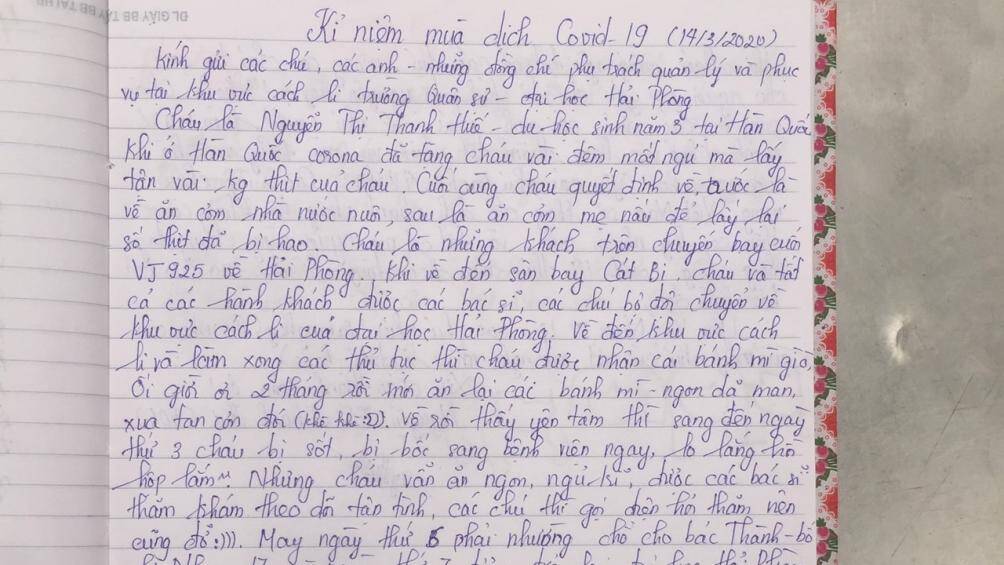 Kỉ niệm mùa dịch Covid-19 (14/3/2020)
Kính gửi các chú, các anh - những đồng chí phụ trách quản lý và phục
vụ tại khu vực cách li trường Quân sự - đại học Hải Phòng
Cháu là Nguyễn Thị Thanh Huế - du học sinh năm 3 tại Hàn Quốc
Khi ở Hàn Quốc corona đã tặng cháu vài đêm mất ngủ mà lấy
tận vài kg thịt của cháu. Cuối cùng cháu quyết định về, trước là
về ăn cơm nhà nước nuôi, sau là ăn cơm mẹ nấu để lấy lại
số thịt đã bị hao. Cháu là những khách trên chuyến bay cuối
VJ925 về Hải Phòng. Khi về đến sân bay Cát Bi, cháu và tất
cả các hành khách được các bác sĩ, các chú bộ đội chuyển về
khu vực cách li của đại học Hải Phòng. Về đến khu vực cách
li và làm xong các thủ tục thì cháu được nhận cái bánh mì giò,
Ôi giời ơi 2 tháng rồi mới ăn lại các bánh mì - ngon dã man,
xua tan cơn đói (khè khè :D). Về rồi thấy yên tâm thì sang đến ngày
thứ 3 cháu bị sốt, bị bốc sang bệnh viện ngay, lo lắng hồi
hộp lắm. Nhưng cháu vẫn ăn ngon, ngủ kĩ, được các bác sĩ
thăm khám theo dõi tận tình, các chú thì gọi điện hỏi thăm nên
cũng đỡ :))). May ngày thứ 5 phải nhường chỗ cho bác Thành - bộ